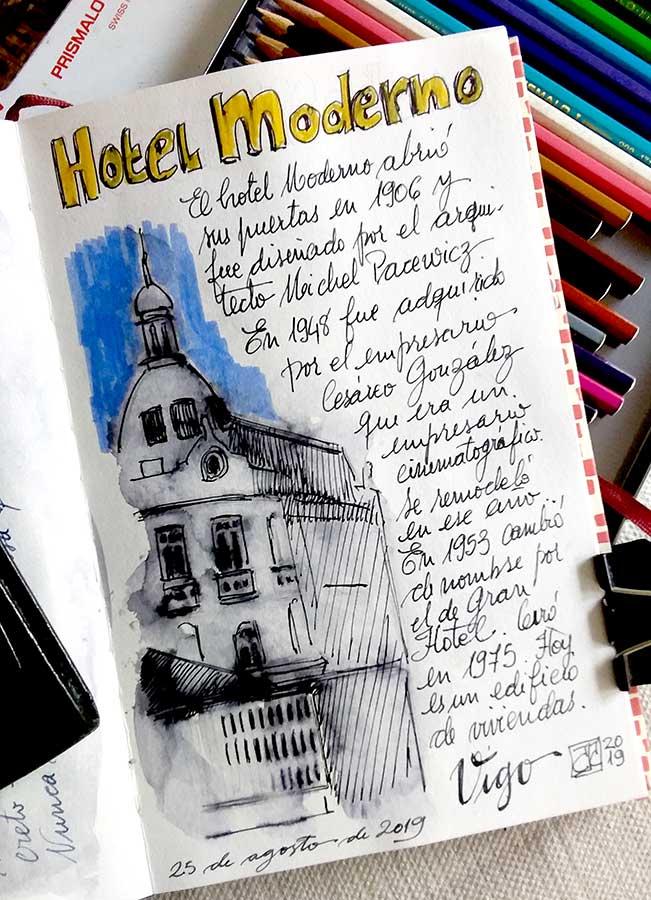 PRISMALO
SWISS
Hotel Moderno
El hotel Moderno abrió
sus puertas en 1906 y
fue diseñado por el arqui-
tecto Michel Pacewicz.
En 1948 fue adquirido
por el empresario
Cesáreo González
que era un
empresario
cinematográfico.
Se remodeló
en ese año.
En 1953 cambió
de nombre por
el de Gran
Hotel. Cerró
en 1975. Hoy
es un edificio
de viviendas.
Vigo
2019
25 de agosto de 2019
creto
Nunca